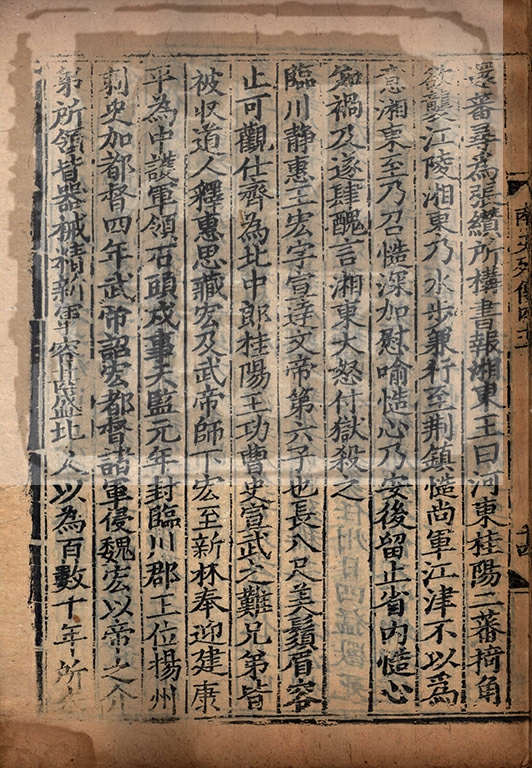 還蕃尋為張纘所構書報湘東王曰河東桂陽二蕃掎角
欲襲江陵湘東乃水步兼行至荆鎮慥尚軍江津不以為
意湘東至乃召慥深加慰喻慥心乃安後留止省内慥心
知禍及遂肆醜言湘東大怒付獄殺之
臨川静惠王宏字宣達文帝第六子也長八尺美鬚眉容
止可觀仕齊為北中郎桂陽王功曹史宣武之難兄弟皆
被收道人釋惠思藏宏及武帝師下宏至新林奉迎建康
平為中護軍領石頭戍事天監元年封臨川郡王位揚州
刺史加都督四年武帝詔宏都督諸軍侵魏宏以帝之介
弟所領皆器械精新軍容甚盛北人以為百數十年所
南史列傳四十一
十四